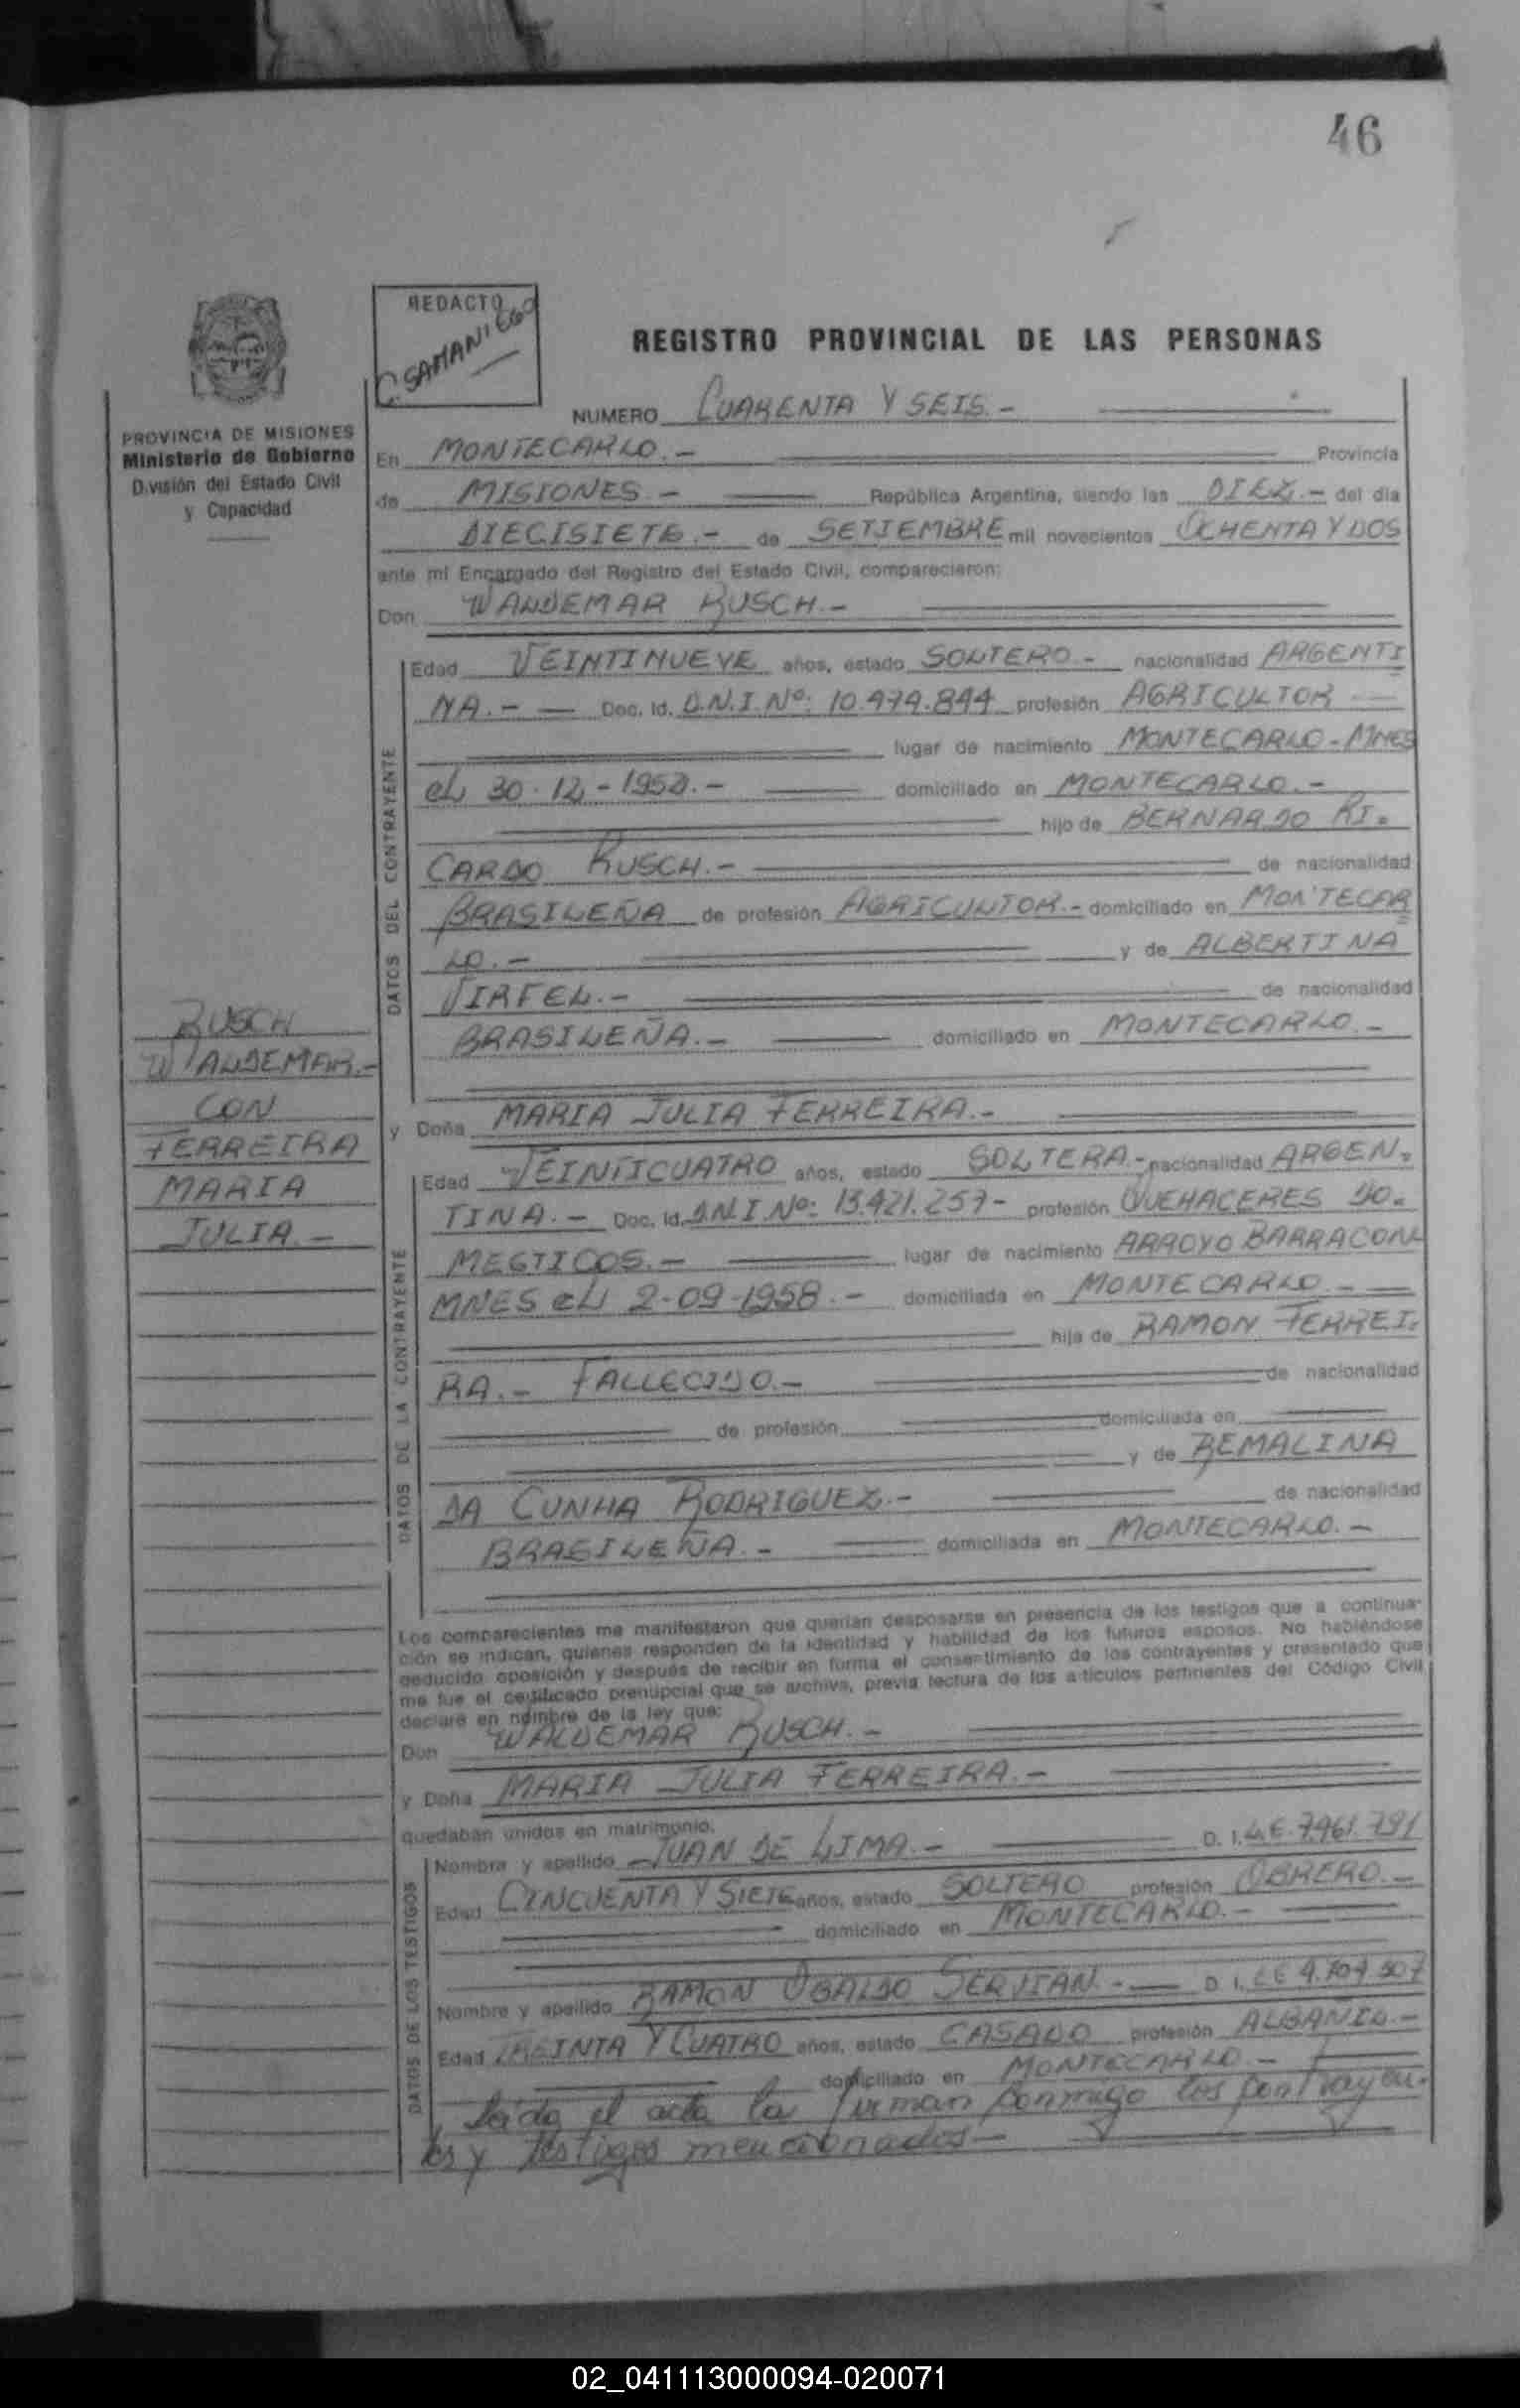 46
REDACTO
C. SAMANIEGO
REGISTRO PROVINCIAL DE LAS PERSONAS
PROVINCIA DE MISIONES
Ministerio de Gobierno
División del Estado Civil
y Capacidad
NUMERO CUARENTA Y SEIS.-
En MONTECARLO.- Provincia
de MISIONES.- República Argentina, siendo las DIEZ.- del día
DIECISIETE.- de SETIEMBRE mil novecientos OCHENTA Y DOS
ante mí Encargado del Registro del Estado Civil, comparecieron:
Don WALDEMAR BUSCH.-
DATOS DEL CONTRAYENTE
Edad VEINTINUEVE años, estado SOLTERO.- nacionalidad ARGENTI
NA.- Doc. Id. D.N.I. Nº: 10.474.844 profesión AGRICULTOR
lugar de nacimiento MONTECARLO-MNES
el 30-12-1952.- domiciliado en MONTECARLO.-
hijo de BERNARDO RI=
CARDO BUSCH.- de nacionalidad
BRASILEÑA de profesión AGRICULTOR.- domiciliado en MONTECAR
LO.- y de ALBERTINA
VIRFEL.- de nacionalidad
BRASILEÑA.- domiciliado en MONTECARLO.-
BUSCH
WALDEMAR.-
CON
FERREIRA
MARIA
JULIA.-
y Doña MARIA JULIA FERREIRA.-
DATOS DE LA CONTRAYENTE
Edad VEINTICUATRO años, estado SOLTERA.- nacionalidad ARGEN=
TINA.- Doc. Id. D.N.I Nº: 13.421.257- profesión QUEHACERES DO=
MESTICOS.- lugar de nacimiento ARROYO BARRACON
MNES el 2-09-1958.- domiciliada en MONTECARLO.-
hija de RAMON FERREI=
RA.- FALLECIDO.- de nacionalidad
de profesión domiciliada en
y de REMALINA
DA CUNHA RODRIGUEZ.- de nacionalidad
BRASILEÑA.- domiciliada en MONTECARLO.-
Los comparecientes me manifestaron que querían desposarse en presencia de los testigos que a continua-
ción se indican, quienes responden de la identidad y habilidad de los futuros esposos. No habiéndose
deducido oposición y después de recibir en forma el consentimiento de los contrayentes y presentado que
me fue el certificado prenupcial que se archiva, previa lectura de los artículos pertinentes del Código Civil,
declaré en nombre de la ley que:
Don WALDEMAR BUSCH.-
y Doña MARIA JULIA FERREIRA.-
quedaban unidos en matrimonio.
DATOS DE LOS TESTIGOS
Nombre y apellido JUAN DE LIMA.- D. I. L.E. 7.461.791
Edad CINCUENTA Y SIETE años, estado SOLTERO profesión OBRERO.-
domiciliado en MONTECARLO.-
Nombre y apellido RAMON UBALDO SERVIAN.- D. I. L.E 4.704.507
Edad TREINTA Y CUATRO años, estado CASADO profesión ALBAÑIL.-
domiciliado en MONTECARLO.-
Leida el acta la firman conmigo los contrayen-
tes y testigos mencionados-
02_041113000094-020071